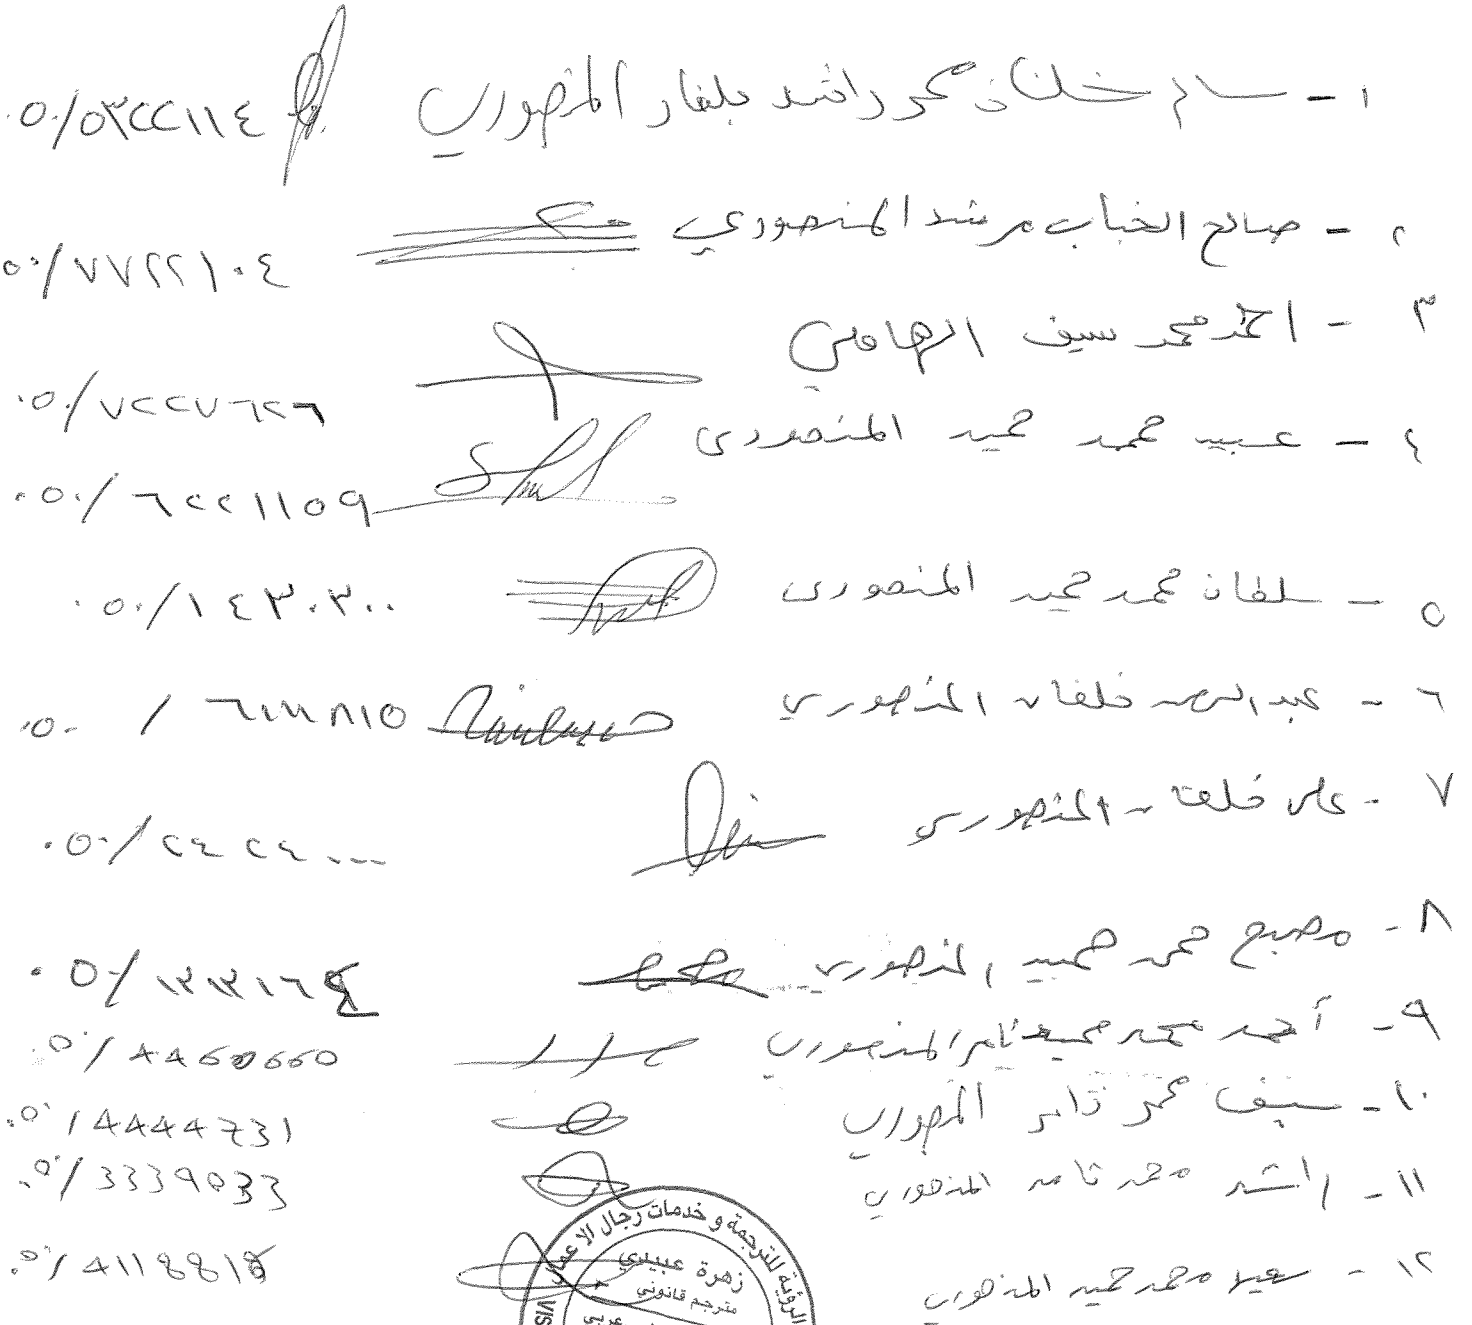 ١ - سالم خلفان محمد راشد بلفار المنصوري ٠٥٠/٥٣٢٢١١٤
٢ - صالح الخباب مرشد المنصوري ٠٥٠/٧٧٢٢١٠٤
٣ - احمد محمد سيف الهاملي ٠٥٠/٧٢٢٧٦٢٦
٤ - عبيد محمد حميد المنصوري ٠٥٠/٦٢٢١١٥٩
٥ - سلطان محمد حميد المنصوري ٠٥٠/١٤٣٠٣٠٠
٦ - عبدالرحمن خلفان المنصوري ٠٥٠/
٧ - علي خلفان المنصوري ٠٥٠/٢٤٢٤٠٠٠
٨ - مصبح محمد حميد المنصوري ٠٥٠/
٩ - أحمد محمد ثامر المنصوري ٠٥٠/
١٠ - سيف محمد ثامر المنصوري ٠٥٠/4444731
١١ - راشد محمد ثامر المنصوري ٠٥٠/
١٢ - سعيد محمد حميد المنصوري ٠٥٠/
الرؤية للترجمة و خدمات رجال الاعمال
زهرة عبيدي
مترجم قانوني
VIS